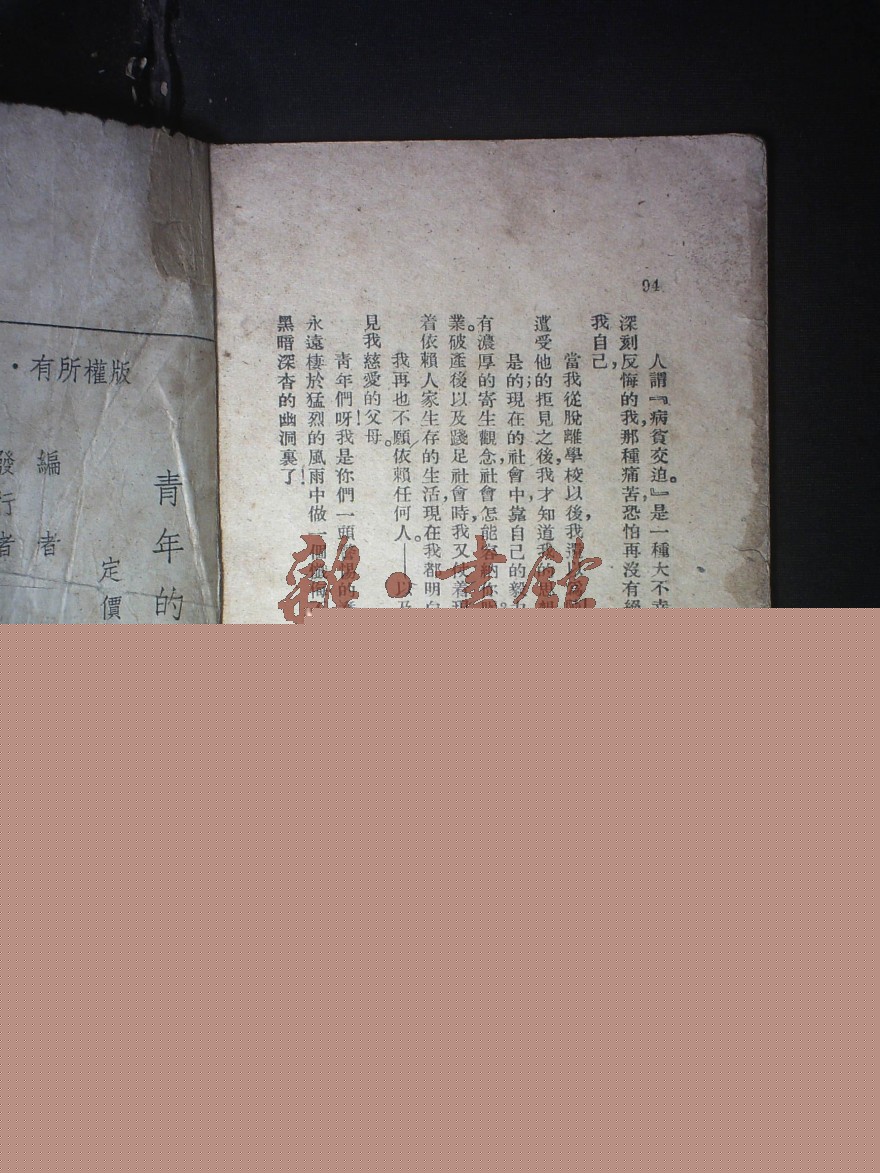 94
人謂『病貧交迫。』是一種大不幸
深刻反悔的我,那種痛苦恐怕再沒有
我自己,
當我從脫離學校以後,我
遭受他的拒見之後,我才知道我的
是的;現在的社會中,靠自己的毅
有濃厚的寄生觀念社會怎能容納你
業。破產後以及踐足社會時,我又仗着
着依賴人家生存的生活,現在我都明白
我再也不願依賴任何人。——以及
見我慈愛的父母。
青年們呀!我是你們一頭
永遠棲於猛烈的風雨中做一個
黑暗深杳的幽洞裏了!
有所權版
青年的
定價
編者
發行者